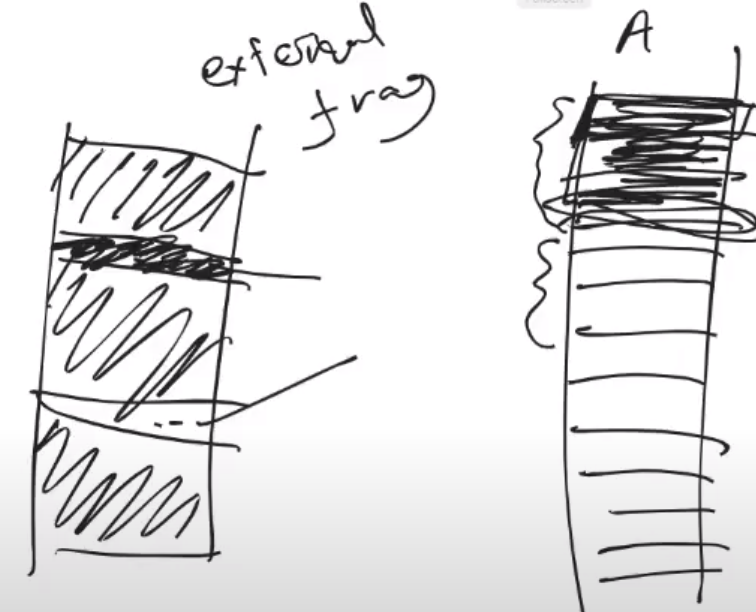 external
frag
A